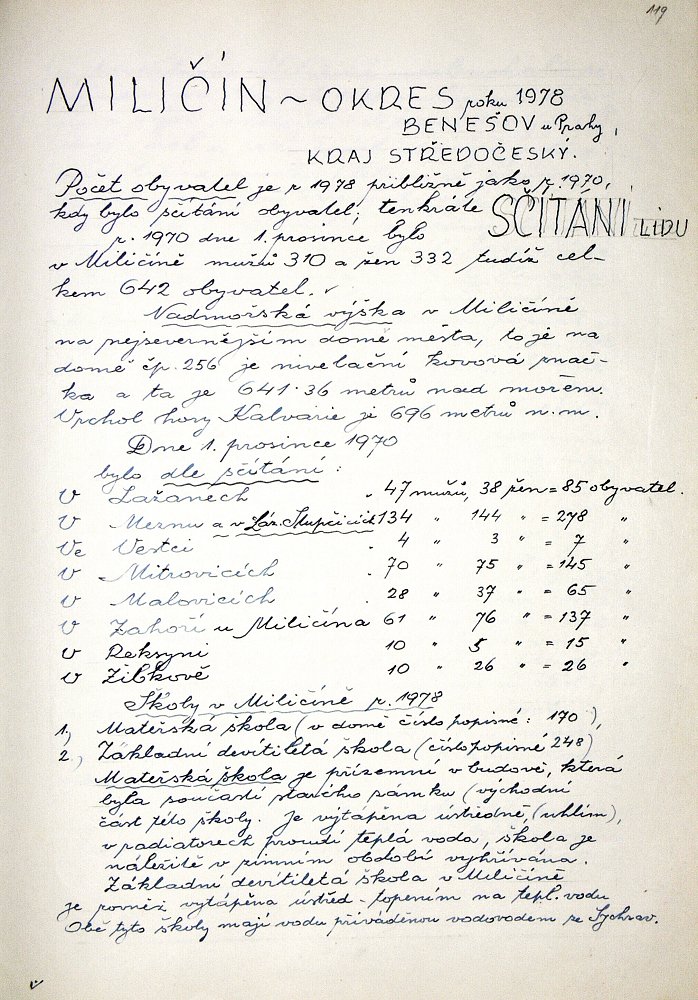 119
MILIČÍN ~ OKRES roku 1978
BENEŠOV u Prahy,
KRAJ STŘEDOČESKÝ.
Počet obyvatel je r 1978 přibližně jako r. 1970,
kdy bylo sčítání obyvatel; tenkráte SČÍTÁNÍ LIDU
r. 1970 dne 1. prosince bylo
v Miličíně mužů 310 a žen 332 tudíž cel-
kem 642 obyvatel.
Nadmořská výška v Miličíně
na nejsevernějším domě města, to je na
domě čp. 256 je nivelační kovová znač-
ka a ta je 641·36 metrů nad mořem.
Vrchol hory Kalvarie je 696 metrů n. m.
Dne 1. prosince 1970
bylo dle sčítání:
V Lažanech 47 mužů, 38 žen = 85 obyvatel.
V Meznu a v Láz. Slupčicích 134 " 144 " = 278 "
Ve Vestci 4 " 3 " = 7 "
V Mitrovicích 70 " 75 " = 145 "
V Malovicích 28 " 37 " = 65 "
V Zahoří u Miličína 61 " 76 " = 137 "
V Reksyni 10 " 5 " = 15 "
V Žibkově 10 " 26 " = 26 "
Školy v Miličíně r. 1978
1, Mateřská škola (v domě číslo popisné: 170),
2, Základní devítiletá škola (číslo popisné 248)
Mateřská škola je přízemní v budově, která
byla součástí starého zámku (východní
část této školy. Je vytápěna ústředně, (uhlím),
v radiatorech proudí teplá voda, škola je
náležitě v zimním období vyhřívána.
Základní devítiletá škola v Miličíně
je rovněž vytápěna ústřed-topením na tepl. vodu
Obě tyto školy mají vodu přiváděnou vodovodem ze Sychrav.